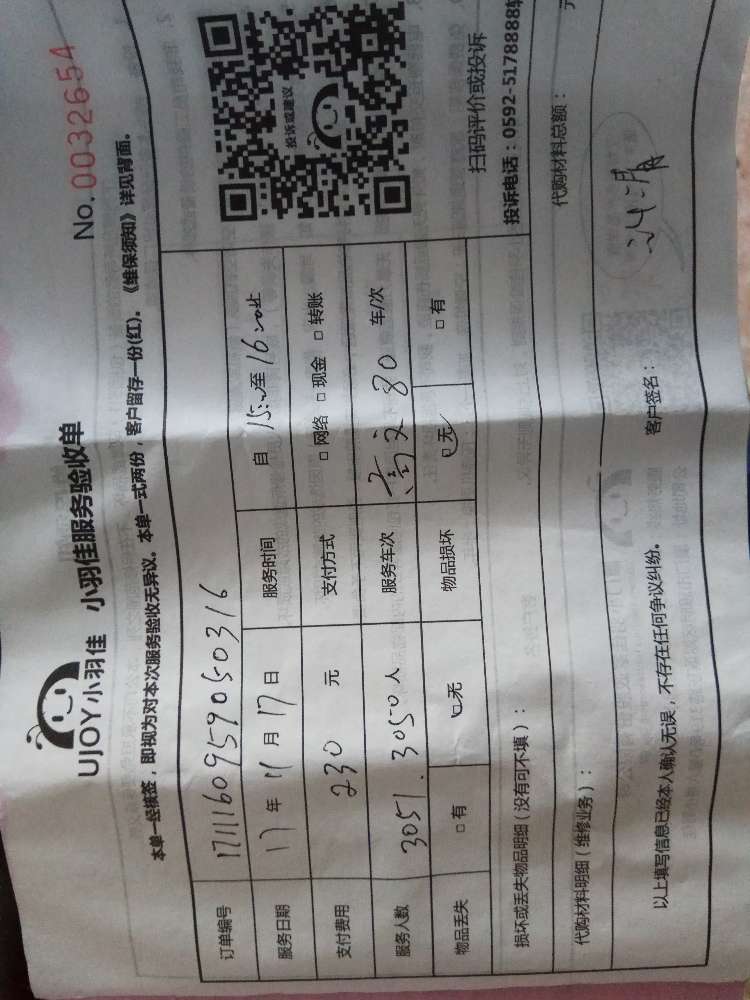 UJOY小羽佳 小羽佳服务验收单
No.0032654
本单一经核签，即视为对本次服务验收无异议。本单一式两份，客户留存一份(红)。《维保须知》详见背面。
订单编号 1711160959050316
服务日期 17年11月17日 服务时间 自15:00至16:00止
支付费用 230元 支付方式 □网络 □现金 □转账
服务人数 3051.3050人 服务车次 80车/次
物品丢失 □有 □无 物品损坏 □无 □有
投诉或建议
扫码评价或投诉
投诉电话：0592-5178888
损坏或丢失物品明细（没有可不填）：
代购材料明细（维修业务）： 代购材料总额： 元
以上填写信息已经本人确认无误，不存在任何争议纠纷。 客户签名：